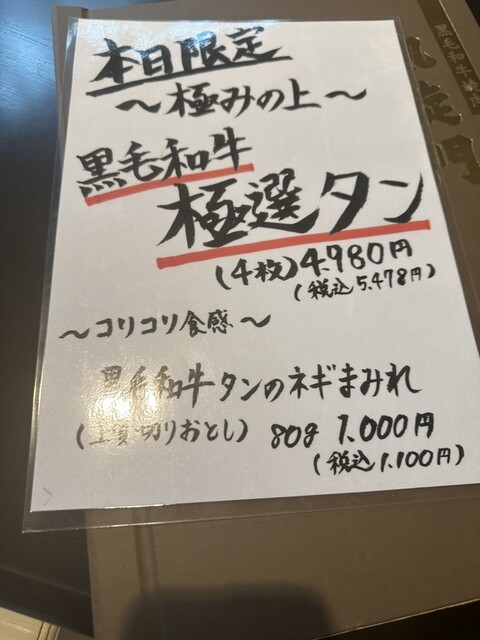 本日限定
～極みの上～
黒毛和牛
極選タン
(4枚)4.980円
(税込5.478円)
～コリコリ食感～
黒毛和牛タンのネギまみれ
切りおとし) 80g 1.000円
(税込1.100円)
黒毛和牛焼肉